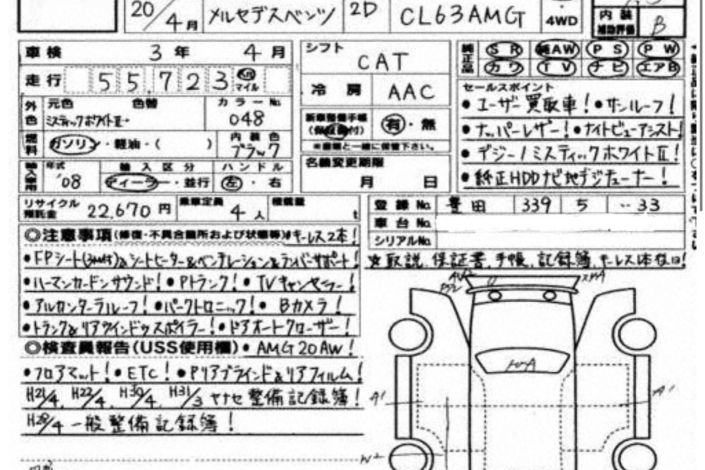 20/4月 メルセデスベンツ 2D CL63AMG 4WD 内装 補助評価 B
車検 3年 4月
シフト CAT
純正品 SR 純AW PS PW
カワ TV ナビ エアB
走行 55,723 km マイル
冷房 AAC
セールスポイント
・ユーザー買取車!・サンルーフ!
・ナッパーレザー!・ナイトビューアシスト!
・デジーノミスティックホワイトⅡ!
・純正HDDナビ地デジチューナー!
外色 元色 色替 カラーNo.
ミスティックホワイトⅡ 048
新車整備手帳(保証書付) 有・無
※書類と一緒に保管して下さい。
燃料 ガソリン・軽油・( ) 内装色 ブラック
名義変更期限
月 日
輸入車用 年式 輸入区分 ハンドル
'08 ディーラー・並行 左・右
リサイクル預託金 22,670円 乗車定員 4人 積載量 t
登録No. 豊田 339 5 33
車台No.
シリアルNo.
◎注意事項(修復・不具合箇所および状態等)キーレス2本!
☆取説、保証書、手帳、記録簿、キーレス1本在中!
・FPシート(3min付)&シートヒーター&ベンチレーション&ランバーサポート!
・ハーマンカードンサウンド!・Pトランク!・TVキャンセラー!
・アルカンターラルーフ!・パークトロニック!・Bカメラ!
・トランク&リアウインドウスポイラー!・ドアオートクローザー!
◎検査員報告(USS使用欄)・AMG20AW!
・フロアマット!・ETC!・Pリアブラインド&リアフィルム!
H21/4、H22/4、H30/4、H31/3 ヤナセ整備記録簿!
H28/4 一般整備記録簿!
A1 A1
W2